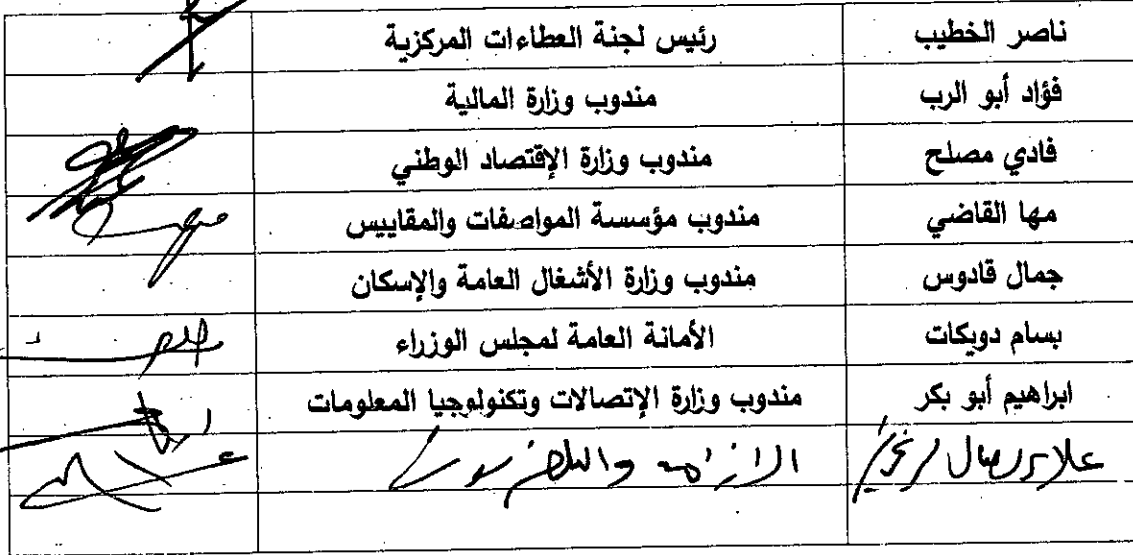 ناصر الخطيب رئيس لجنة العطاءات المركزية
فؤاد أبو الرب مندوب وزارة المالية
فادي مصلح مندوب وزارة الإقتصاد الوطني
مها القاضي مندوب مؤسسة المواصفات والمقاييس
جمال قادوس مندوب وزارة الأشغال العامة والإسكان
بسام دويكات الأمانة العامة لمجلس الوزراء
ابراهيم أبو بكر مندوب وزارة الإتصالات وتكنولوجيا المعلومات